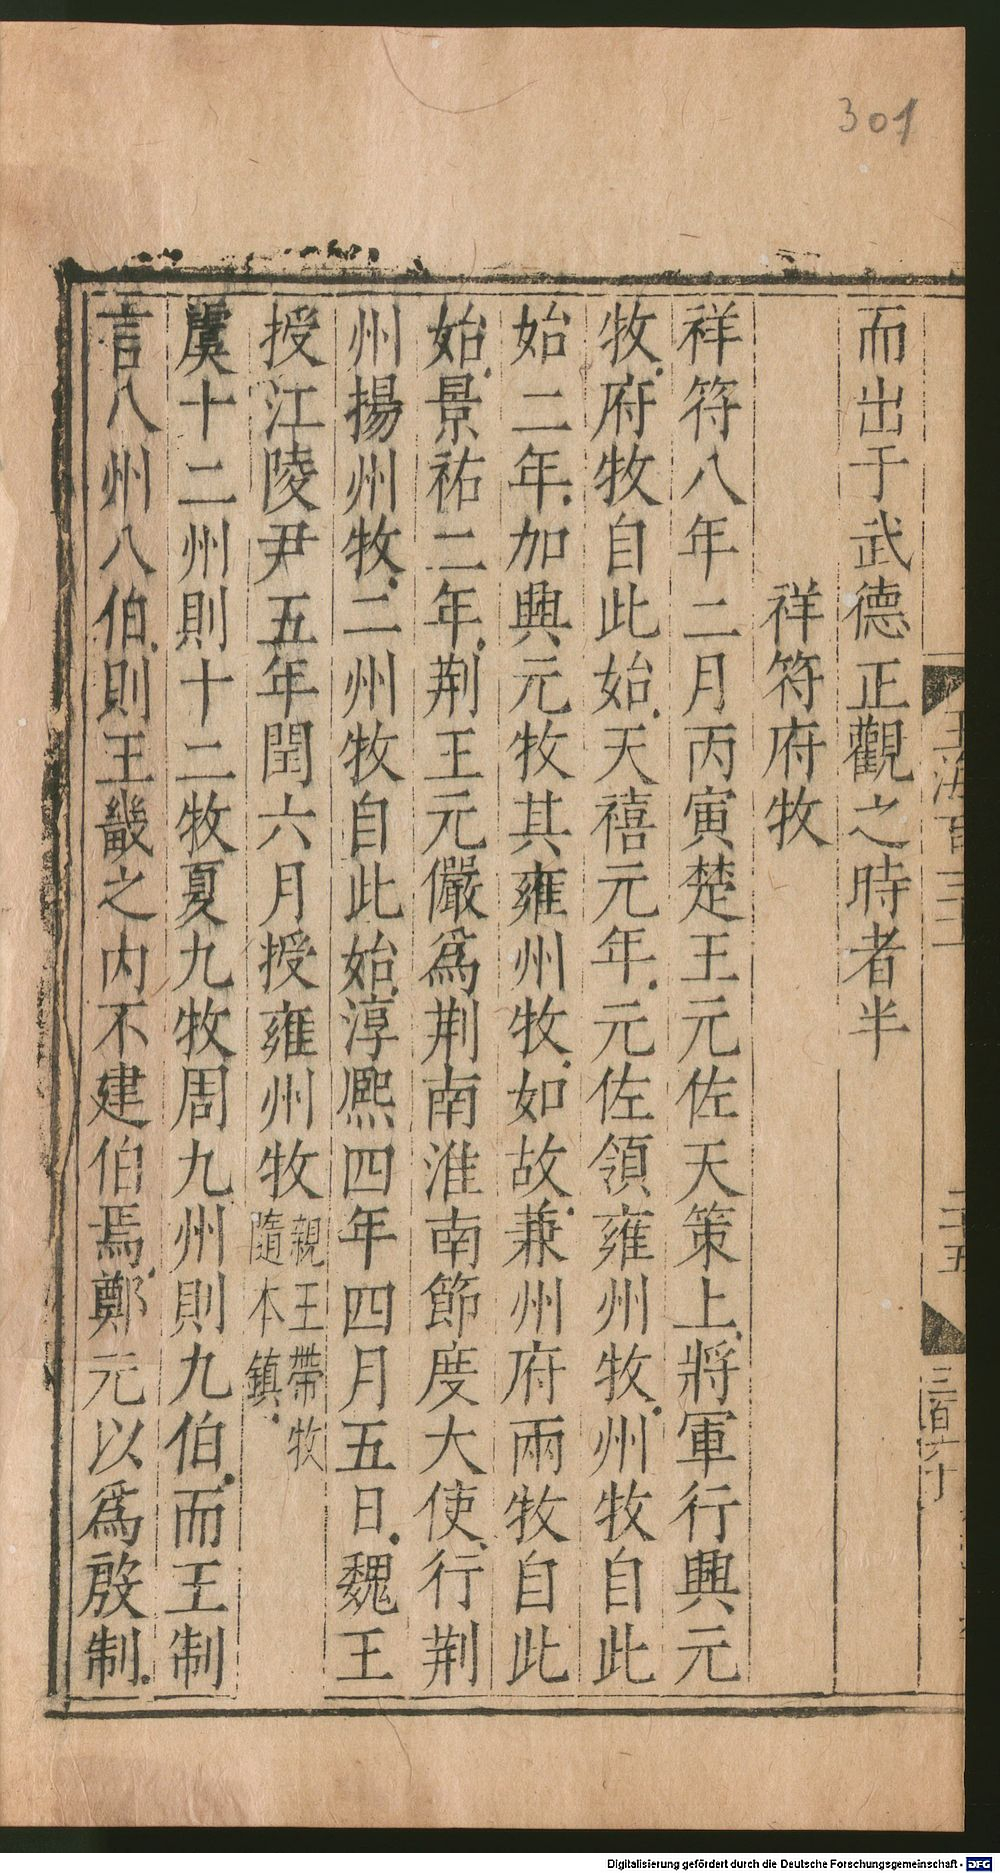 301
而出于武德正觀之時者半
祥符府牧
祥符八年二月丙寅楚王元佐天策上將軍行興元
牧府牧自此始天禧元年元佐領雍州牧州牧自此
始二年加興元牧其雍州牧如故兼州府兩牧自此
始景祐二年荆王元儼爲荆南淮南節度大使行荆
州揚州牧二州牧自此始淳熈四年四月五日魏王
授江陵尹五年閏六月授雍州牧親王帶牧隨本鎮
虞十二州則十二牧夏九牧周九州則九伯而王制
言八州八伯則王畿之内不建伯焉鄭元以爲殷制
Digitalisierung gefördert durch die Deutsche Forschungsgemeinschaft - DFG